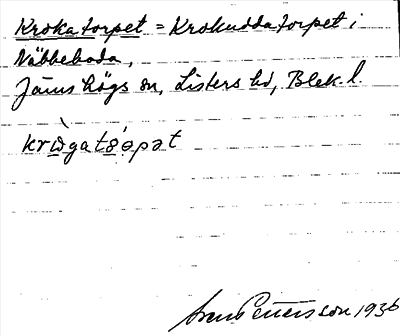 Krokatorpet = Krokuddatorpet i
Näbbeboda,
Jämshögs sn, Listers hd, Blek. l.
Pettersson 1936